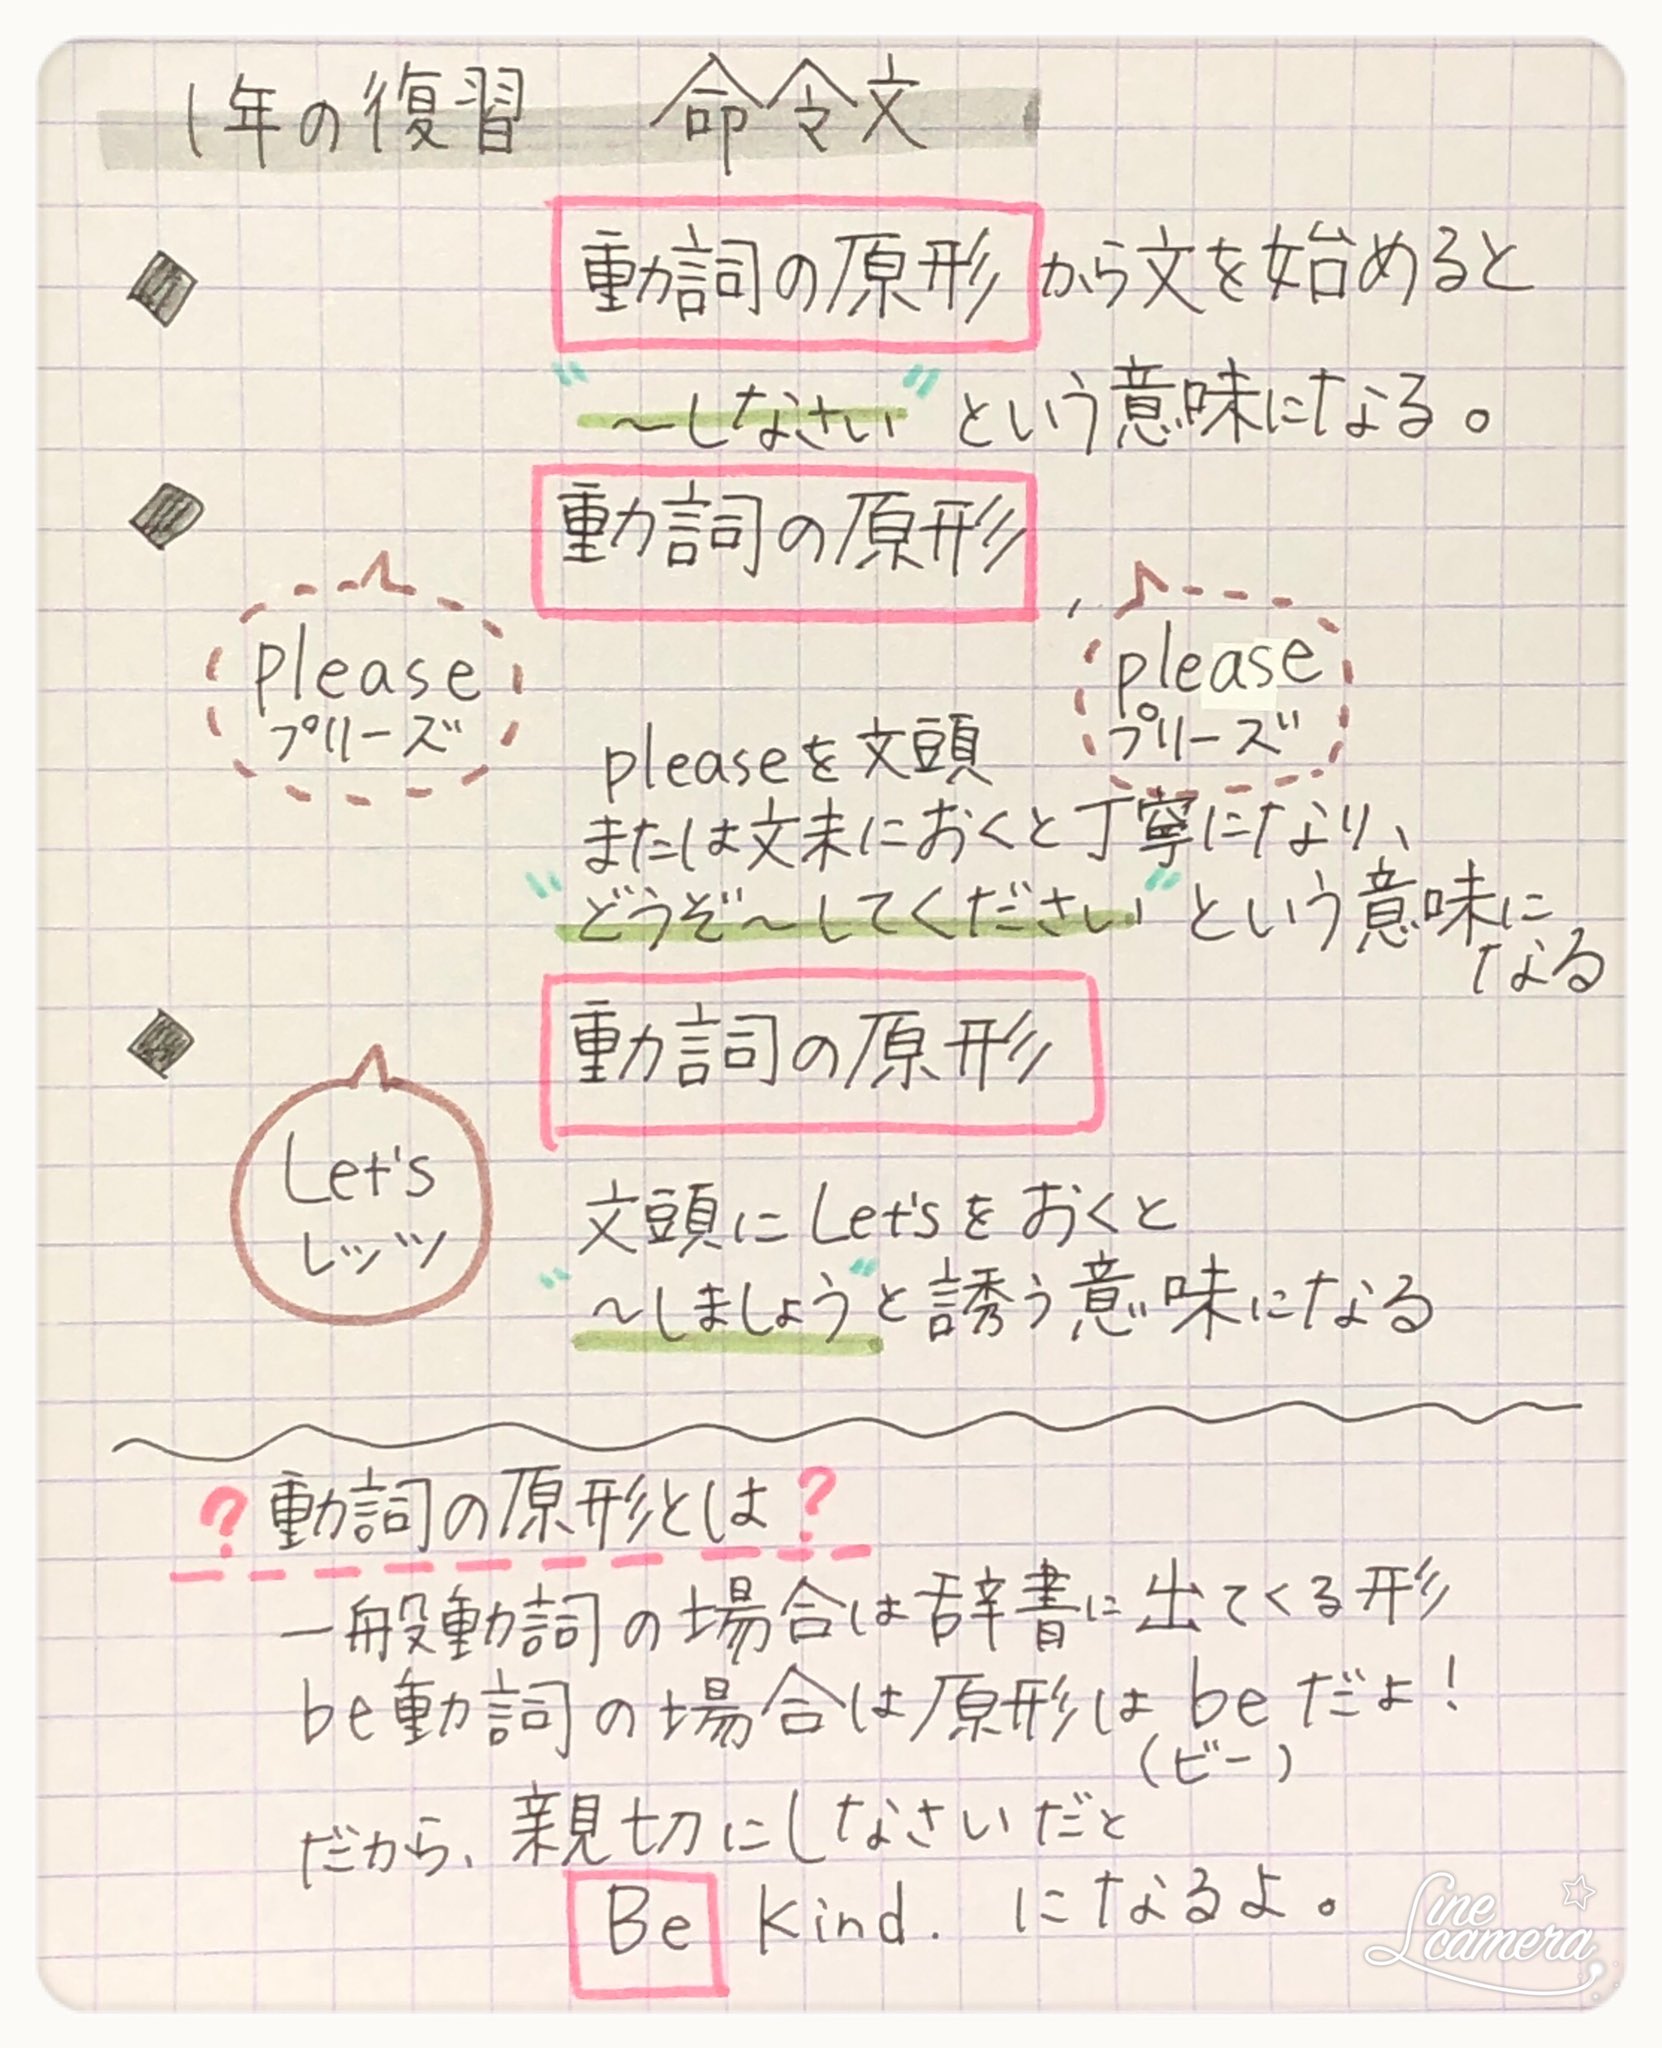 1年の復習 命令文
動詞の原形から文を始めると
"〜しなさい"という意味になる。
動詞の原形
please
プリーズ
,please
プリーズ
pleaseを文頭
または文末におくと丁寧になり、
"どうぞ〜してください"という意味に
なる
動詞の原形
Let's
レッツ
文頭にLet'sをおくと
"〜しましょう"と誘う意味になる
?動詞の原形とは?
一般動詞の場合は辞書に出てくる形
be動詞の場合は原形はbeだよ!
(ビー)
だから、親切にしなさいだと
Be kind. になるよ。
Line camera